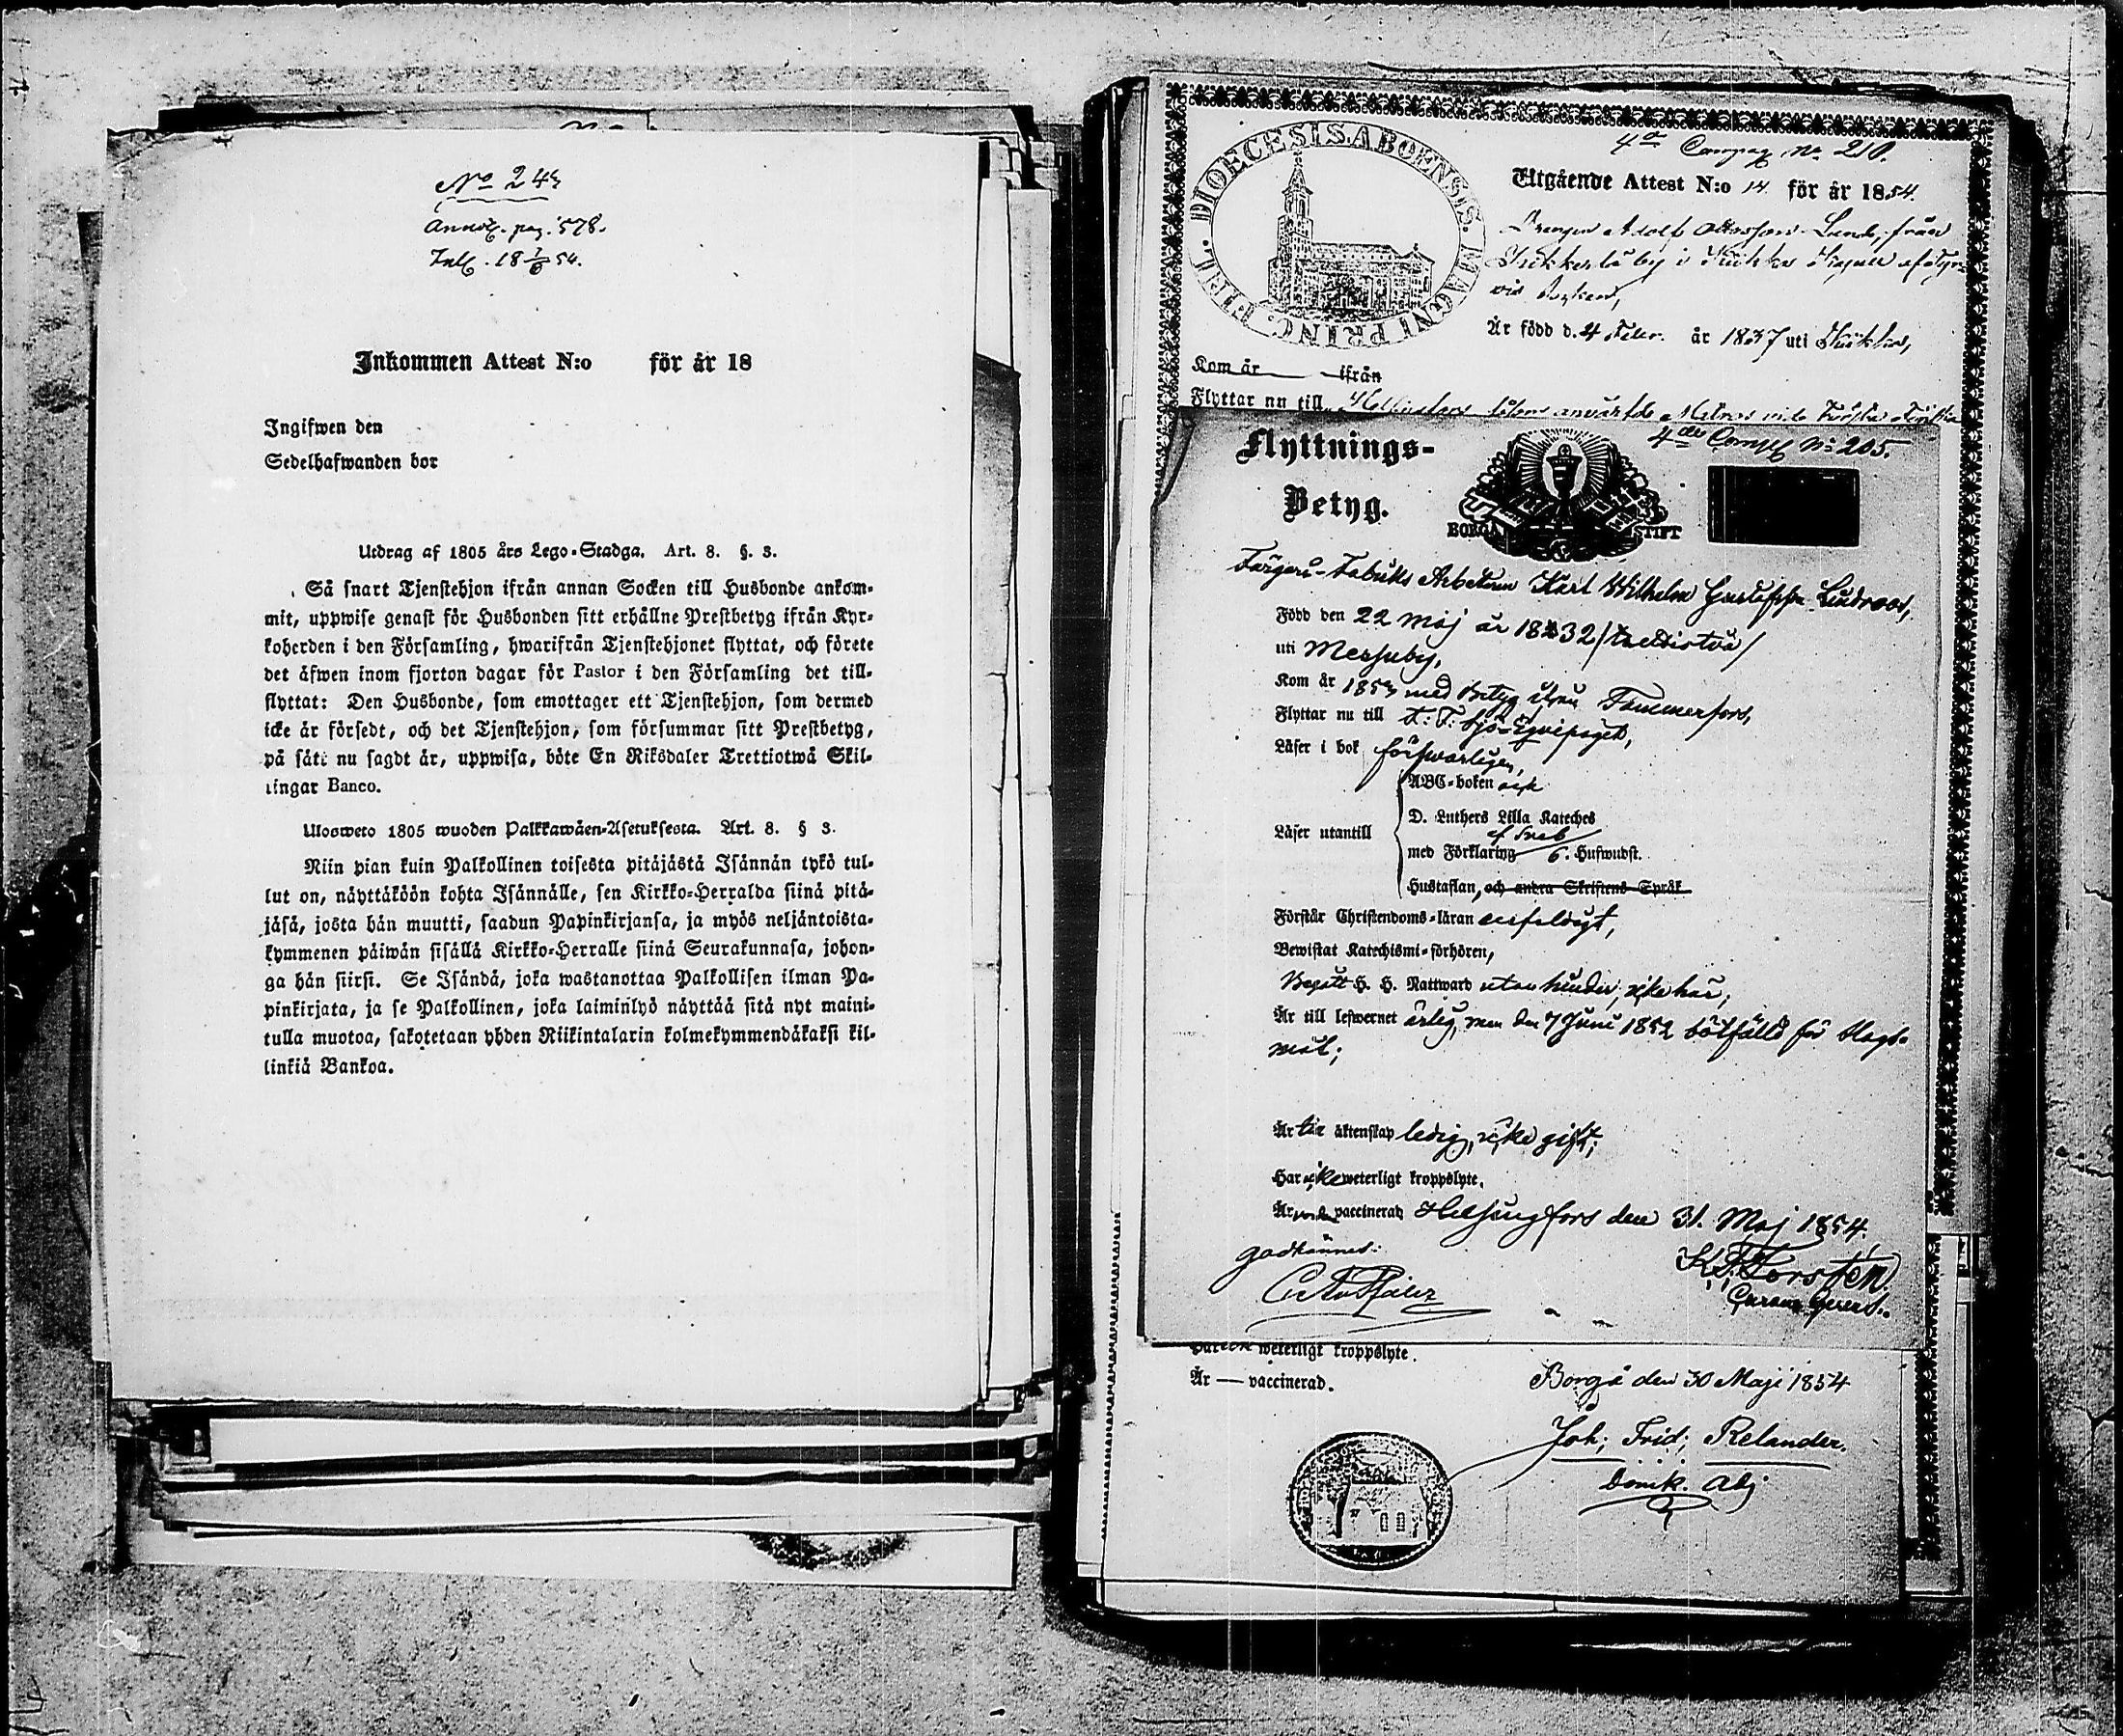 No 244
Annot. pag. 578.
Inkommen Attest N:o för år 18
Ingifwen den
Sedelhafwanden bor
Utdrag af 1805 års Lego-Stadga. Art. 8. §. 3.
Så snart Tjenstehjon ifrån annan Socken till Husbonde ankom-
mit, uppwise genast för Husbonden sitt erhållne Prestbetyg ifrån Kyr-
koherden i den Församling, hwarifrån Tjenstehjonet flyttat, och förete
det äfwen inom fjorton dagar för Pastor i den Församling det till-
flyttat: Den Husbonde, som emottager ett Tjenstehjon, som dermed
icke är försedt, och det Tjenstehjon, som försummar sitt Prestbetyg,
på sätt nu sagdt är, uppwisa, böte En Riksdaler Trettiotwå Skil-
lingar Banco.
Ulosweto 1805 wuoden Palkkawäen-Asetuksesta. Art. 8. § 3.
Niin pian kuin Palkollinen toisesta pitäjästä Isännän tykö tul-
lut on, näyttäköön kohta Isännälle, sen Kirkko-Herralda siinä pitä-
jäsä, josta hän muutti, saadun Papinkirjansa, ja myös neljäntoista-
kymmenen päiwän sisällä Kirkko-Herralle siinä Seurakunnasa, johon-
ga hän siirsi. Se Isändä, joka wastanottaa Palkollisen ilman Pa-
pinkirjata, ja se Palkollinen, joka laiminlyö näyttää sitä nyt maini-
tulla muotoa, sakotetaan yhden Riikintalarin kolmekymmendäkaksi kil-
linkiä Bankoa.
DIOECESIS ABOENSIS. MAGNI PRINC. FINL.
4de Compag No 210.
Utgående Attest N:o 14. för år 1854.
Drengen Adolf Lund, från
by i
Är född d. 4 Febr. år 1837 uti
Kom år ifrån
Flyttar nu till Helsingfors
Flyttnings-
Betyg.
BORGÅ STIFT
4de Comp No 205.
Färgeri-Fabriks Arbetaren Karl Wilhelm Lindroos,
Född den 22 Maj år 1832 /trettiotvå/
uti Messuby,
Kom år 1853 med Betyg ifrån Tammerfors,
Flyttar nu till F: F: Sjö-Equipaget,
Läser i bok försvarligen,
Läser utantill
ABC-boken
D. Luthers Lilla Kateches
af Sveb
med Förklaring 6. Hufwudst.
Hustaflan, och andra Skriftens Språk
Förstår Christendoms-läran enfaldigt,
Bewistat Katechismi-förhören,
Begått H. H. Nattward utan hinder, icke här,
Är till lefwernet ärlig, men den 7 Juni 1852 bötfälld för slags-
mål;
Är till äktenskap ledig, icke gift;
Har icke weterligt kroppslyte,
Är vaccinerad, Helsingfors den 31. Maj 1854.
godkännes:
K. F. Forstén
weterligt kroppslyte.
Är — vaccinerad.
Borgå den 30 Maji 1854
Joh: Frid: Relander.
Domk. Adj